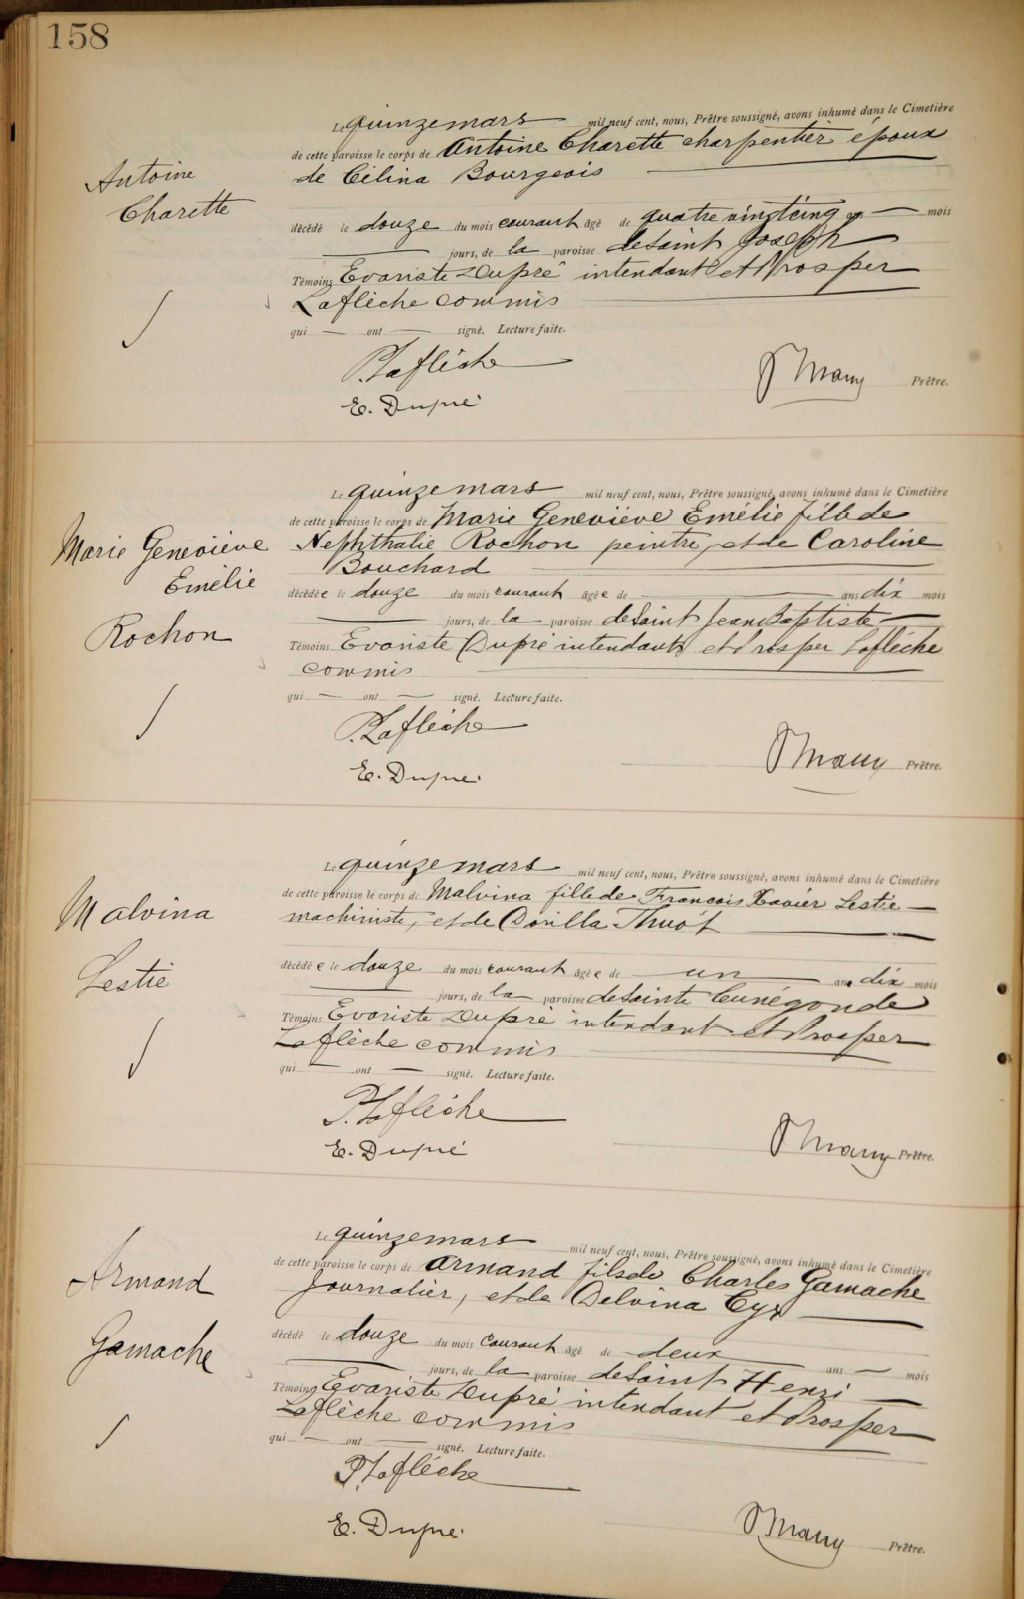 158
Le quinze mars mil neuf cent, nous, Prêtre soussigné, avons inhumé dans le Cimetière
de cette paroisse le corps de Antoine Charette charpentier époux
de Célina Bourgeois
Antoine
Charette
décédé le douze du mois courant âgé de quatre vingt cinq an — mois
— jours, de la paroisse de Saint Joseph
Témoins Evariste Dupré intendant et Prosper
Laflèche commis
qui — ont — signé. Lecture faite.
P. Laflèche
Prêtre.
E. Dupré
Le quinze mars mil neuf cent, nous, Prêtre soussigné, avons inhumé dans le Cimetière
de cette paroisse le corps de Marie Geneviève Emélie fille de
Nephthalie Rochon peintre, et de Caroline
Bouchard
Marie Geneviève
Emélie
Rochon
décédée le douze du mois courant âgée de — ans dix mois
— jours, de la paroisse de Saint Jean Baptiste
Témoins Evariste Dupré intendant et Prosper Laflèche
commis
qui — ont — signé. Lecture faite.
P. Laflèche
Prêtre.
E. Dupré.
Le quinze mars mil neuf cent, nous, Prêtre soussigné, avons inhumé dans le Cimetière
de cette paroisse le corps de Malvina fille de François Xavier Lestie
machiniste, et de Dorilla Thuot
Malvina
Lestie
décédée le douze du mois courant âgée de un an dix mois
— jours, de la paroisse de Sainte Cunégonde
Témoins Evariste Dupré intendant et Prosper
Laflèche commis
qui — ont — signé. Lecture faite.
P. Laflèche
Prêtre.
E. Dupré
Le quinze mars mil neuf cent, nous, Prêtre soussigné, avons inhumé dans le Cimetière
de cette paroisse le corps de Armand fils de Charles Gamache
Journalier, et de Delvina Cyr
Armand
Gamache
décédé le douze du mois courant âgé de deux ans — mois
— jours, de la paroisse de Saint Henri
Témoins Evariste Dupré intendant et Prosper
Laflèche commis
qui — ont — signé. Lecture faite.
P. Laflèche
Prêtre.
E. Dupré.